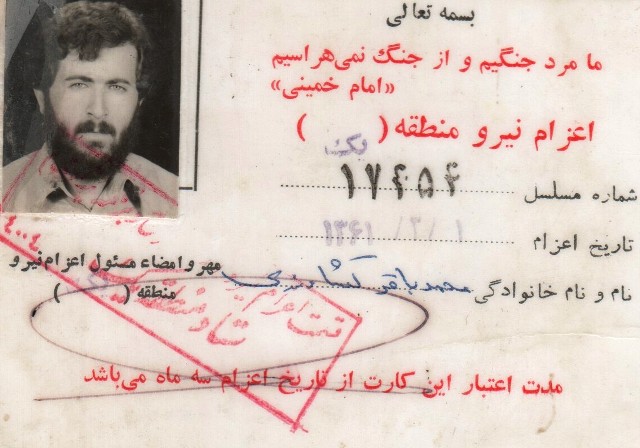 بسمه تعالی
ما مرد جنگیم و از جنگ نمی‌هراسیم
«امام خمینی»
اعزام نیرو منطقه ( یک )
شماره مسلسل ۱۷۴۵۴
تاریخ اعزام ۱۳۶۱/۲/۱
نام و نام خانوادگی محمد باقر
مهر و امضاء مسئول اعزام نیرو
منطقه ( )
مدت اعتبار این کارت از تاریخ اعزام سه ماه می‌باشد